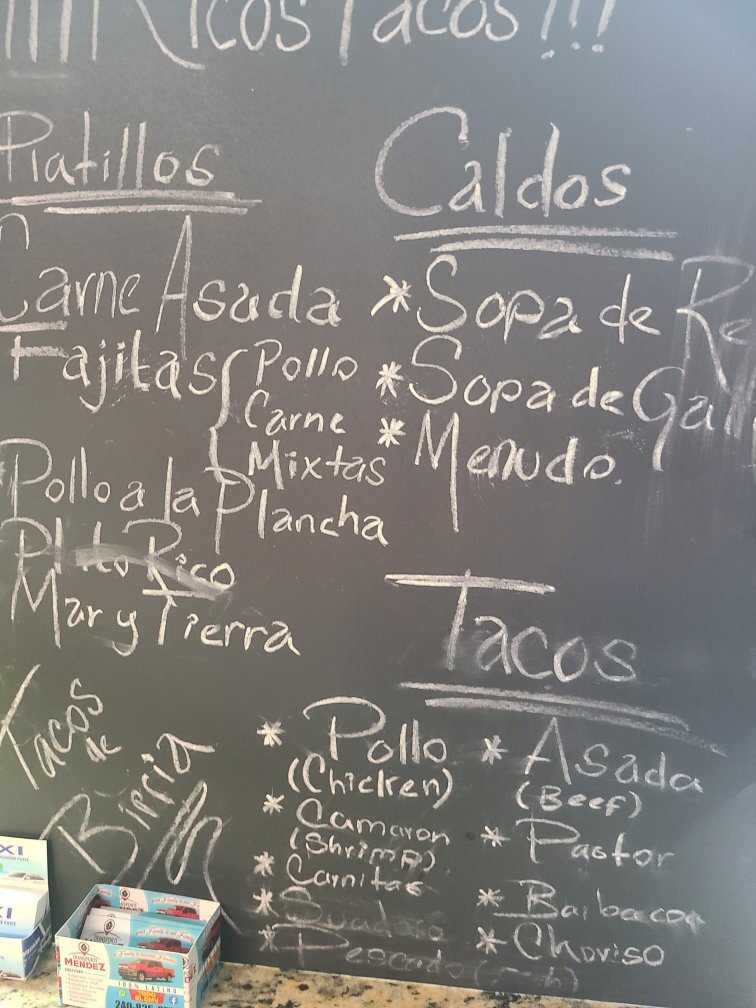 Ricos Tacos!!!
Platillos
Carne Asada
Fajitas { Pollo
Carne
Mixtas
Pollo a la Plancha
Plato Rico
Mar y Tierra
Tacos
de
Birria
Caldos
* Sopa de Re
* Sopa de Gall
* Menudo.
Tacos
* Pollo
(Chicken)
* Camaron
(Shrimp)
* Carnitas
*
* Pescado (
* Asada
(Beef)
* Pastor
* Barbacoa
* Choriso
XI
XI
TRANSPORTE
MENDEZ
DELIVERY
100% LATINO